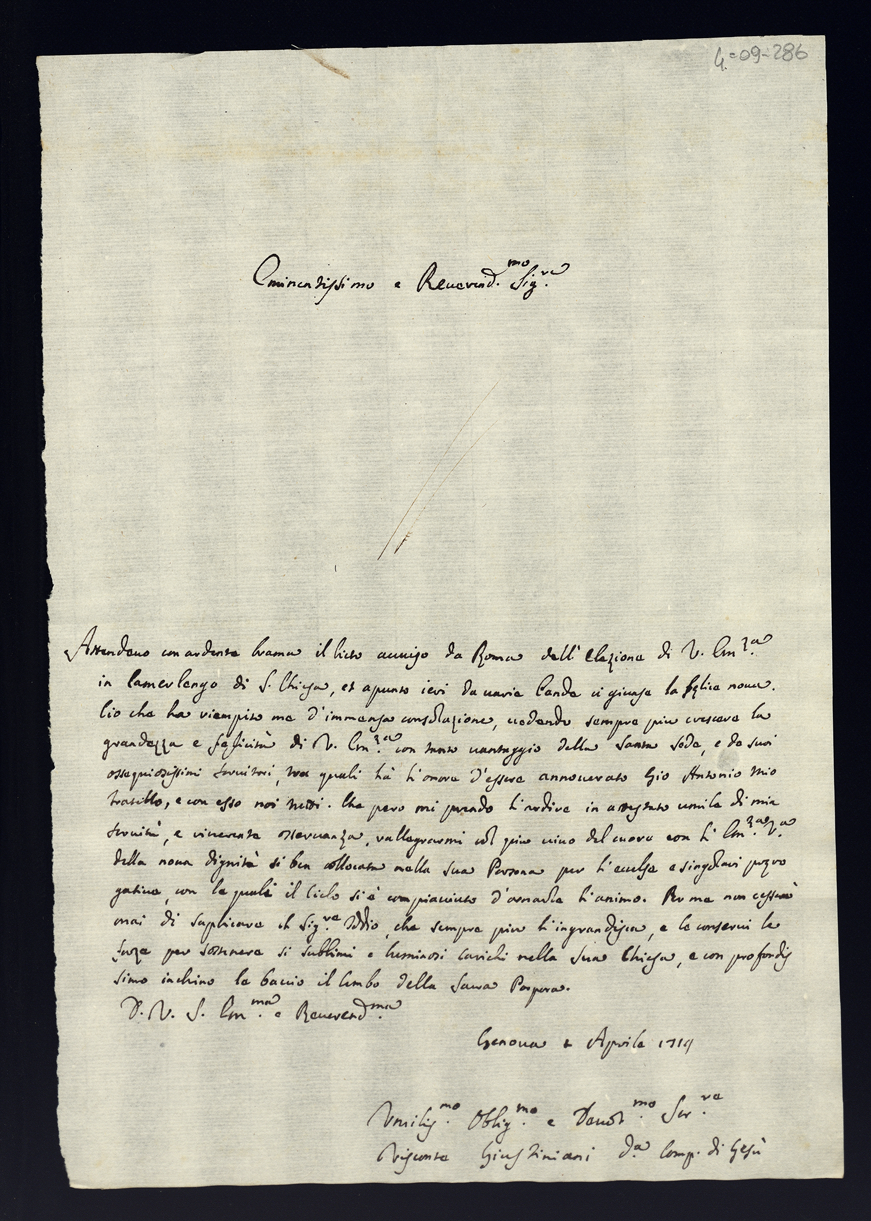 4=09-286
Eminentissimo e Reverend.mo Sig.re
Attendevo con ardente brama il lieto avviso da Roma dell'Elezione di V. Em.za
in Camerlengo di S. Chiesa, et apunto ieri da varie bande ci giunse la felice nova.
Ciò che ha riempito me d'immensa consolazione, vedendo sempre piu crescere la
grandezza e felicità di V. Em.za con tanto vantaggio della Santa Sede, e de suoi
ossequiosissimi servitori, tra quali hà l'onore d'essere annoverato Gio Antonio mio
fratello, e con esso noi tutti. Che pero mi prendo l'ardire in attestato umile di mia
servitù, e riverente osservanza, rallegrarmi col piu vivo del cuore con l'Em.za V.a
della nova dignità si ben collocata nella sua Persona per l'eccelse e singolari prero
gative, con le quali il Cielo si è compiaciuto d'ornarle l'animo. Per me non cesserò
mai di suplicare il Sig.re Iddio, che sempre piu l'ingrandisca, e le conservi le
forze per sostenere si sublimi e luminosi carichi nella sua Chiesa, e con profondis
simo inchino le baccio il lembo della Sacra Porpora.
D. V. S. Em.ma e Reverend.ma
Genova Aprile 1719
Umilis.mo Oblig.mo e Devot.mo Ser.re
Visconte Giustiniani d.a Comp. di Gesù